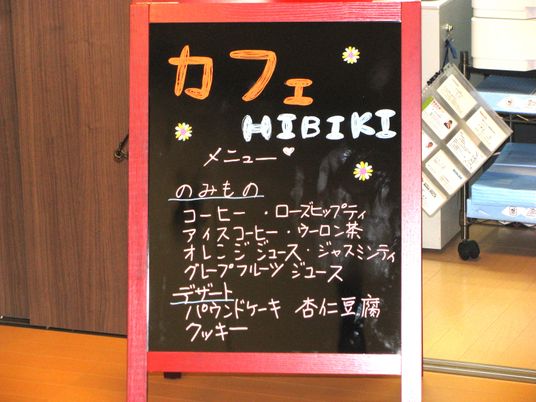 カフェ
HIBIKI
メニュー
のみもの
コーヒー・ローズヒップティ
アイスコーヒー・ウーロン茶
オレンジジュース・ジャスミンティ
グレープフルーツジュース
デザート
パウンドケーキ 杏仁豆腐
クッキー